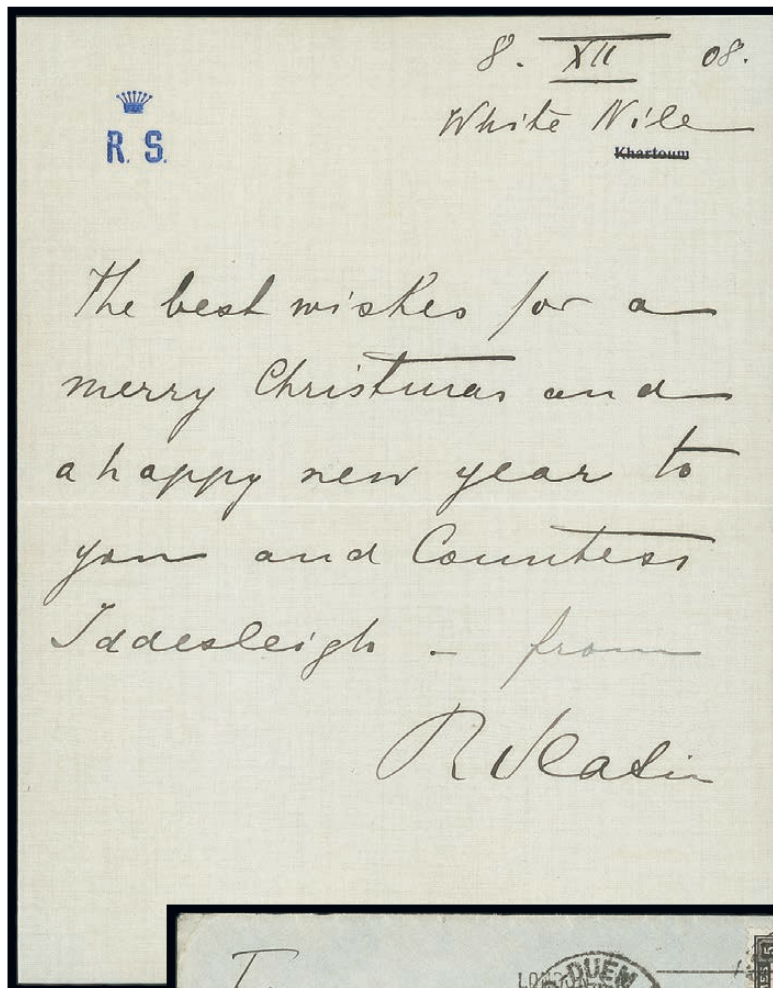 8. XII 08.
White Nile
Khartoum
R. S.
The best wishes for a
merry Christmas and
a happy new year to
you and Countess
Iddesleigh - from
R Slatin
LONDON
DUEM